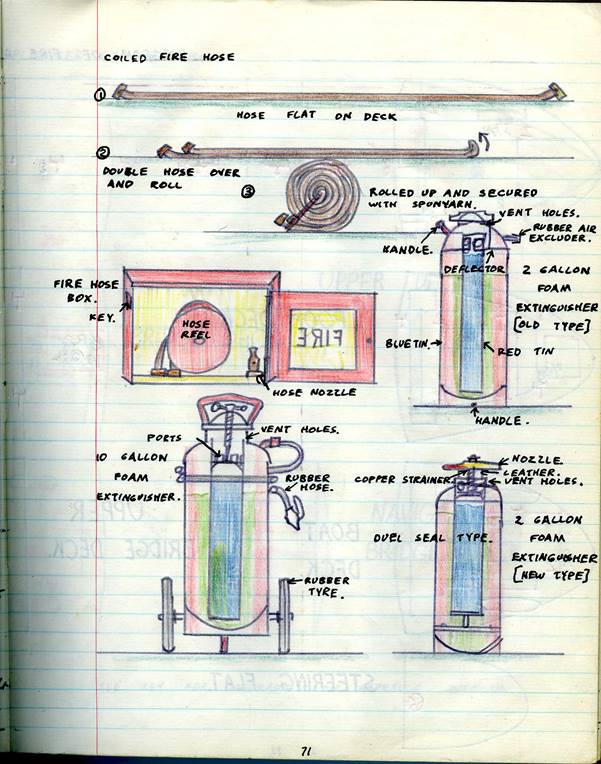 COILED FIRE HOSE
①
HOSE FLAT ON DECK
②
DOUBLE HOSE OVER
AND ROLL
③
ROLLED UP AND SECURED
WITH SPUNYARN.
VENT HOLES.
RUBBER AIR
EXCLUDER.
HANDLE.
DEFLECTOR
2 GALLON
FOAM
EXTINGUISHER
[OLD TYPE]
BLUE TIN.
RED TIN
HANDLE.
FIRE HOSE
BOX.
KEY.
HOSE
REEL
FIRE
HOSE NOZZLE
PORTS
VENT HOLES.
10 GALLON
FOAM
EXTINGUISHER.
RUBBER
HOSE.
RUBBER
TYRE.
NOZZLE.
LEATHER.
COPPER STRAINER.
VENT HOLES.
DUEL SEAL TYPE.
2 GALLON
FOAM
EXTINGUISHER
[NEW TYPE]
UPPER
BRIDGE DECK
BOAT
DECK
STEERING FLAT
71